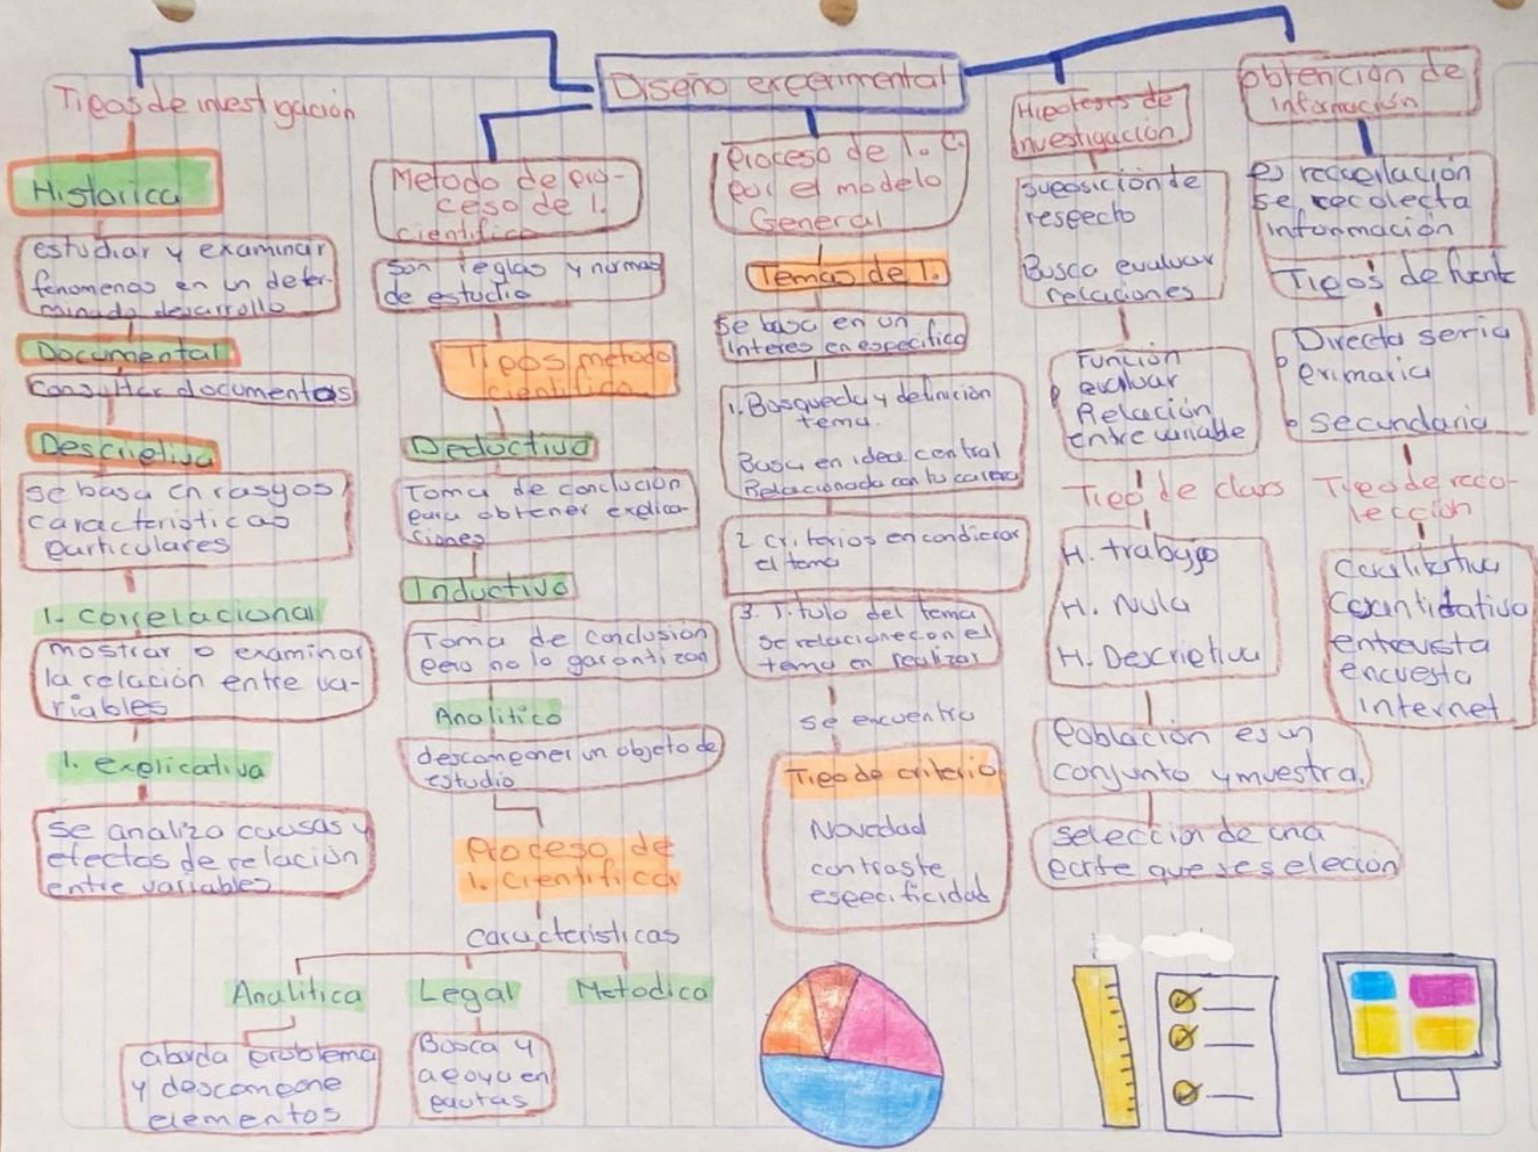 Diseño experimental
Tipos de investigación
Historica
estudiar y examinar
fenomenos en un deter-
minado desarrollo
Documental
Consultar documentos
Descriptiva
se basa en rasgos
caracteristicas
particulares
1. correlacional
mostrar o examinar
la relación entre va-
riables
1. explicativa
se analiza causas y
efectos de relación
entre variables
Metodo de pro-
ceso de I.
cientifica
son reglas y normas
de estudio
Tipos metodo
cientifico
Deductivo
Toma de conclución
para obtener explica-
ciones
Inductivo
Toma de conclusión
pero no lo garantizan
Analitico
descomponer un objeto de
estudio
Proceso de
I. cientifica
caracteristicas
Analitica
aborda problema
y descompone
elementos
Legal
Busca y
apoyu en
pautas
Metodica
Proceso de I. C.
por el modelo
General
Temas de I.
Se basa en un
interes en especifico
1. Bosqueda y definición
tema.
Basa en idea central
Relacionada con tu carera
2 criterios en condicior
el tema
3. Titulo del tema
se relacione con el
tema en realizar
se encuentra
Tipo de criterio
Novedad
contraste
especificidad
Hipotesis de
investigación
suposición de
respecto
Busca evaluar
relaciones
Función
evaluar
Relación
entre variable
Tipo de clars
H. trabajo
H. Nula
H. Descriptiva
Población es un
conjunto y muestra.
selección de una
parte que se seleción
obtención de
información
es recopilación
se recolecta
información
Tipos de fuente
Directa seria
primaria
secundaria
Tipo de reco-
lección
Cualitativa
Cuantidativa
entrevista
encuesta
internet